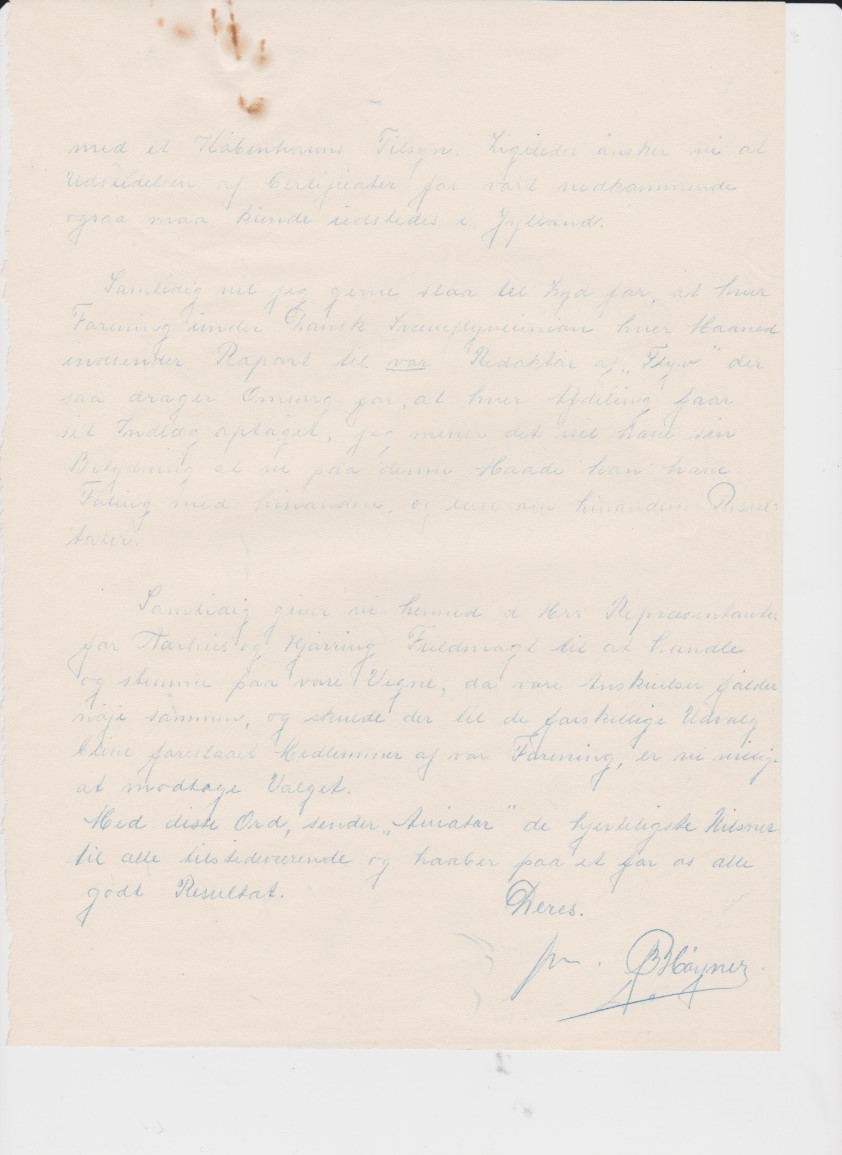 med et Københavns Tilsyn. Ligeledes ønsker vi at
Udstedelsen af Certificater for vort vedkommende
ogsaa maa kunde udstedes i Jylland.
Samtidig vil jeg gerne slaa til Lyd for, at hver
Forening under Dansk Svæveflyverunion hver Maaned
indsender Rapart til vor Redaktør af „Flyv" der
saa drager Omsorg for, at hver Afdeling faar
sit Indlæg optaget, jeg mener det vil have sin
Betydning at vi paa denne Maade kan have
Føling med hinanden, og læse om hinandens Resul-
tater.
Samtidig giver vi hermed d Hrr Repræsentanter
for Aarhus og Hjørring Fuldmagt til at handle
og stemme paa vore Vegne, da vore Anskuelser falder
nøje sammen, og skulde der til de forskellige Udvalg
blive foreslaaet Medlemmer af vor Forening, er vi villig
at modtage Valget.
Med disse Ord, sender „Aviator" de hjerteligste Hilsner
til alle tilstedeværende og haaber paa et for os alle
godt Resultat.
Deres.